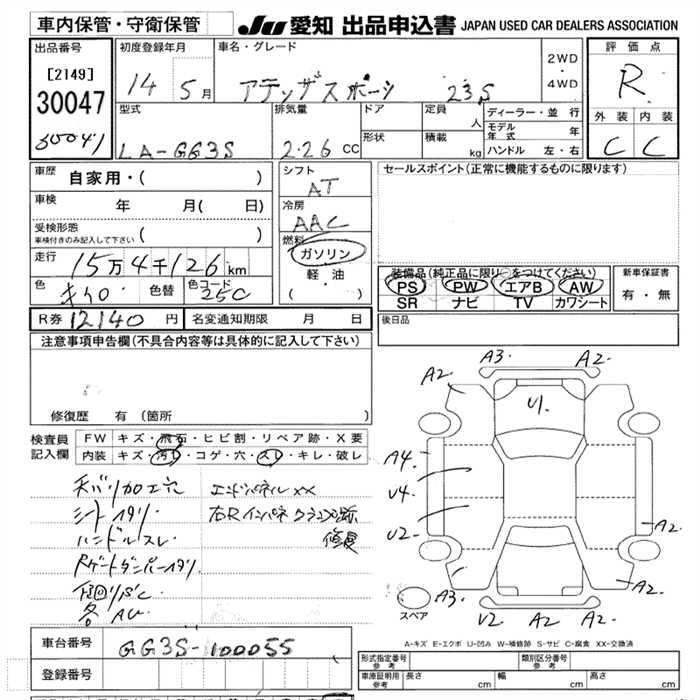 車内保管・守衛保管
JU 愛知 出品申込書 JAPAN USED CAR DEALERS ASSOCIATION
出品番号
[2149]
30047
30047
初度登録年月
14 5月
車名・グレード
アテンザスポーツ 23S
2WD
・
4WD
評価点
R
外装 内装
C C
型式
LA-GG3S
排気量
2.26 cc
ドア
形状
定員
人
積載
kg
ディーラー・並行
モデル年式 年
ハンドル 左・右
車歴
自家用・( )
車検
年 月( 日)
受検形態
車検付きのみ記入して下さい ( )
走行
15万4千126km
色
色替
色コード
25C
シフト
AT
冷房
AAC
燃料
ガソリン
・
軽油
( ・ )
セールスポイント(正常に機能するものに限ります)
装備品(純正品に限り○をつけてください)
PS PW エアB AW
SR ナビ TV カワシート
新車保証書
有・無
R券 12140 円 名変通知期限 月 日
後日品
注意事項申告欄(不具合内容等は具体的に記入して下さい)
修復歴 有(箇所
検査員
記入欄
FW キズ・飛石・ヒビ割・リペア跡・X要
内装 キズ・汚レ・コゲ・穴・スレ・キレ・破レ
天バリ加工穴 エンドパネルxx
シートスタリ 右Rインパネクランプ跡
ハンドルスレ 修復
Rゲートダンパースタリ
下回りサビ
各AU
A3. A2.
A2.
U1.
A4.
U4
U2.
A2.
A3.
U2 A2 A2
A2.
スペア
A-キズ E-エクボ U-凹み W-補修跡 S-サビ C-腐食 XX-交換済
車台番号
GG3S-100055
登録番号
形式指定番号
参考
類別区分番号
参考
車庫証明用
参考
長さ cm 幅 cm 高さ cm